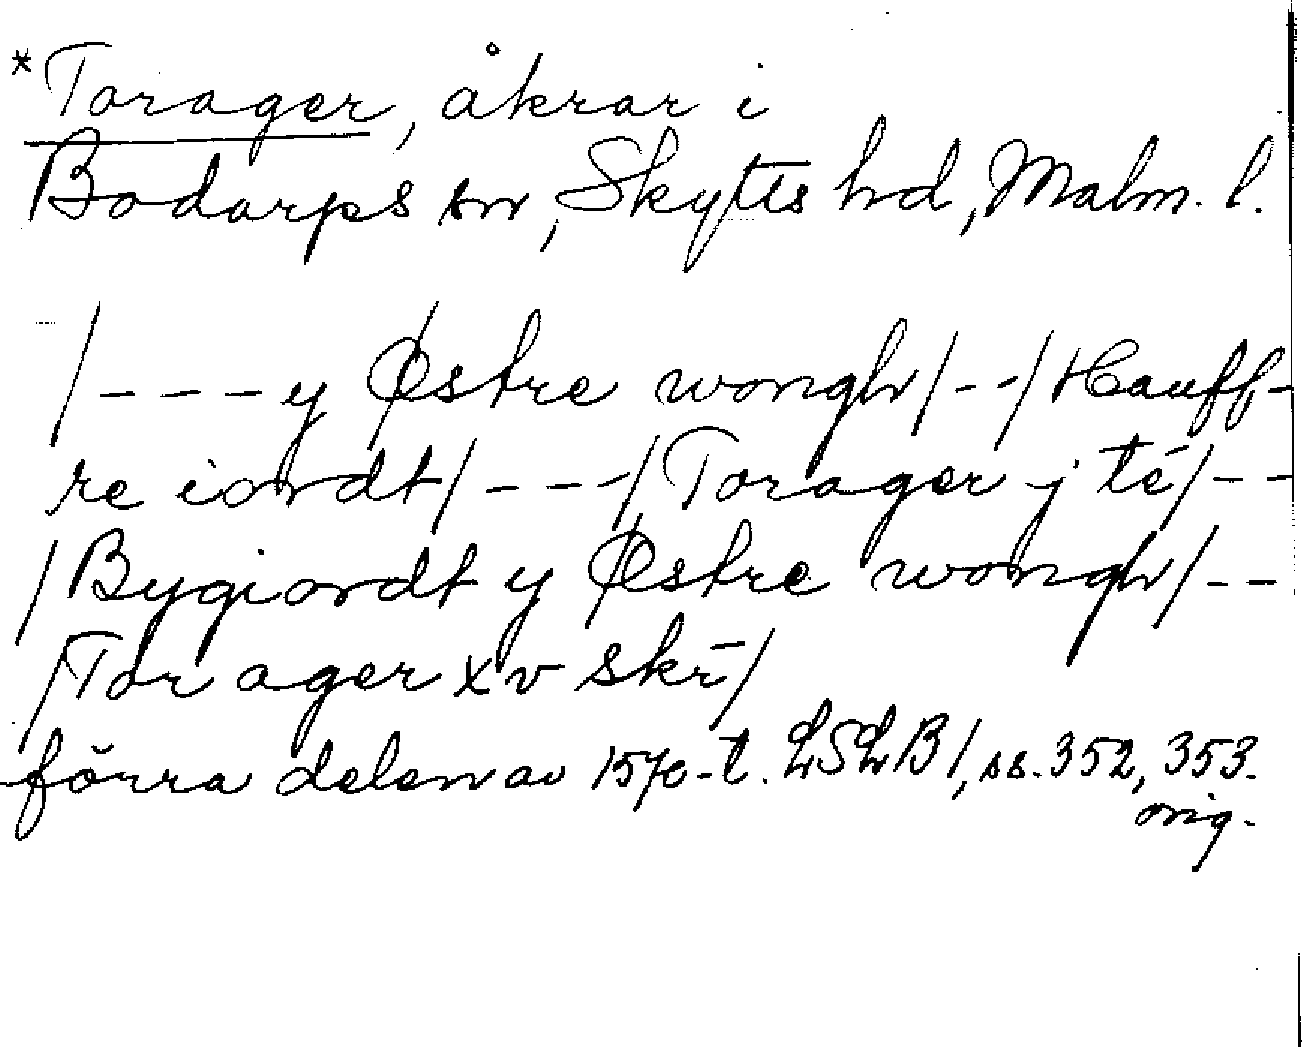 *Torager, åkrar i
Bodarps sn, Skytts hd, Malm. l.
/---y Østre wongh/--/Hauff-
re iordt/---/Torager j té/--
/Bygiordt y Østre wongh/--
/Tor ager xv skr̄/
förra delen av 1570-t. LSLB1, ss. 352, 353.
orig.